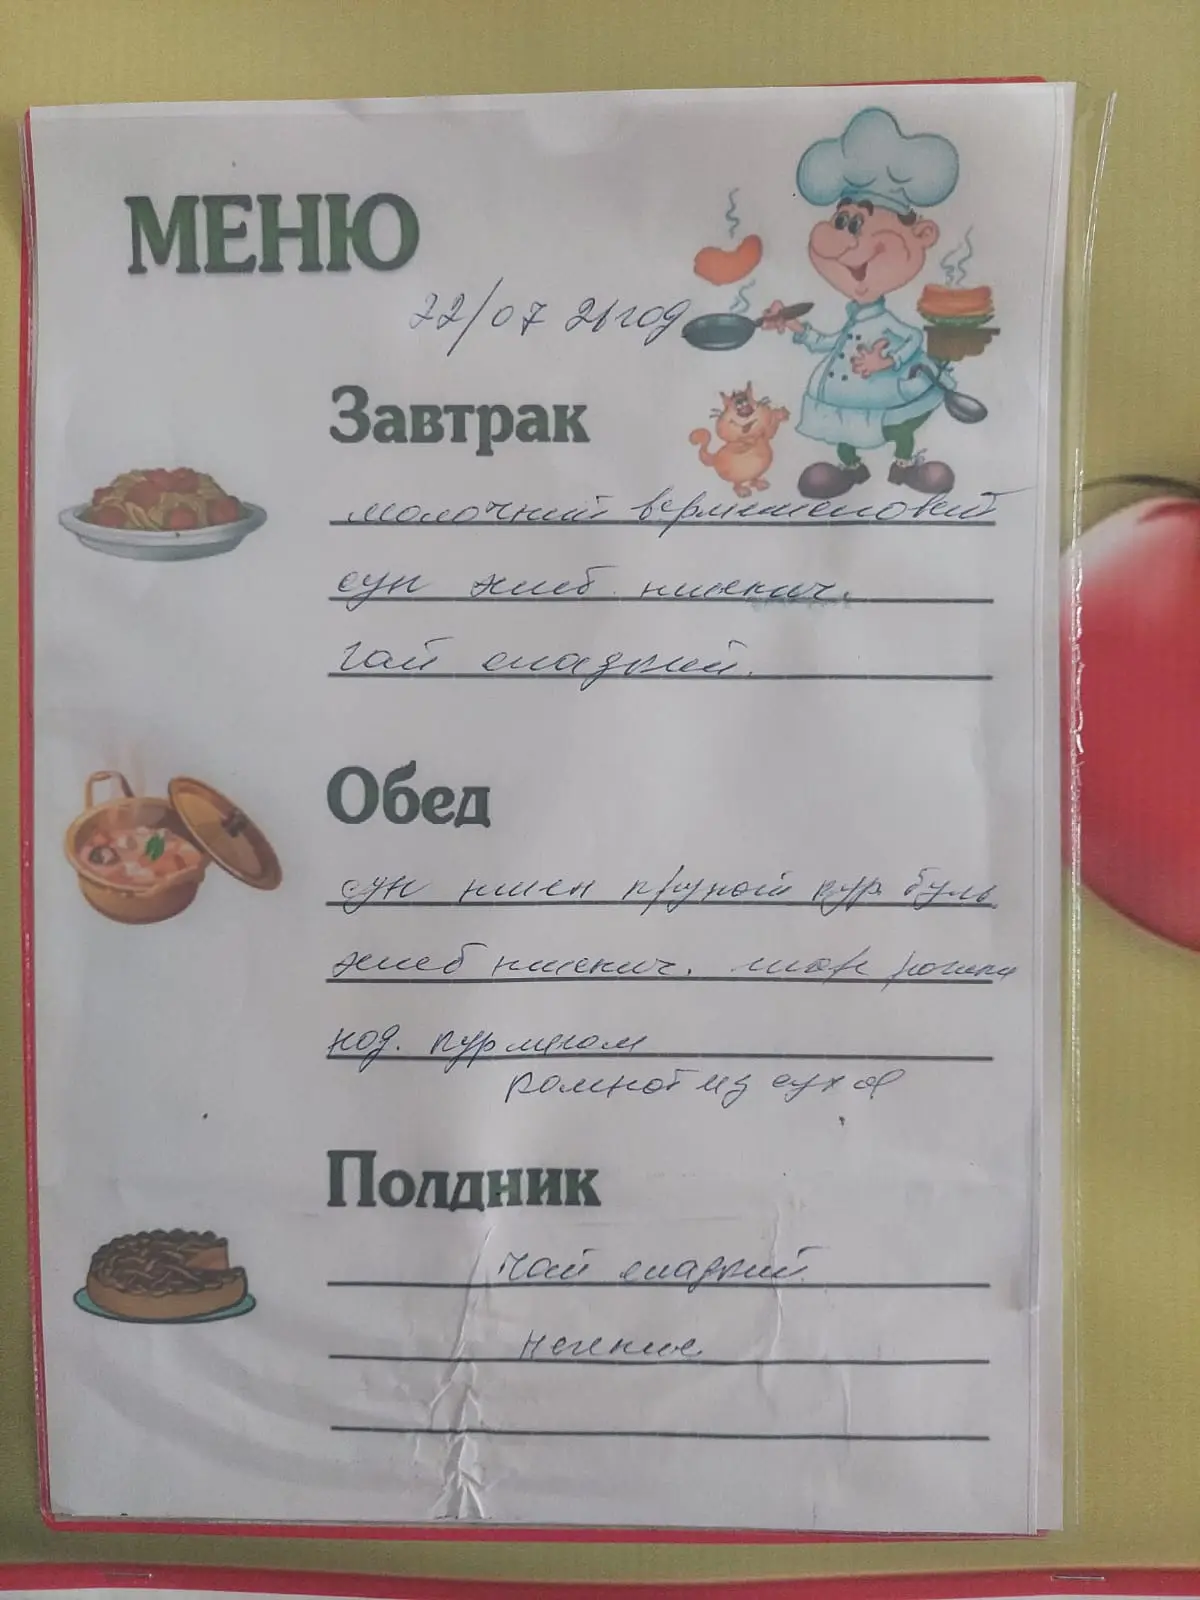 МЕНЮ
22/07 21 год
Завтрак
молочний вермишеловий
суп хлеб пшенич.
чай сладкий.
Обед
суп пшен крупой кур буль
хлеб пшенич. мак рошки
под. кур мясом
компот из сухоф
Полдник
чай сладкий
печение